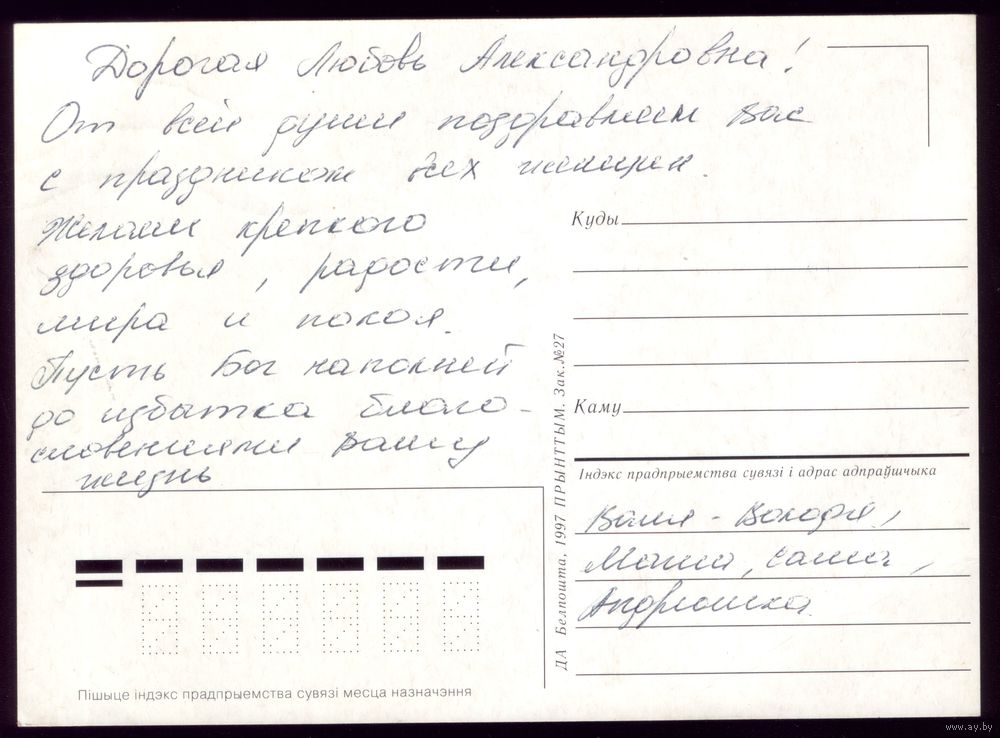 Дорогая Любовь Александровна!
От всей души поздравляем Вас
с праздником всех женщин.
Желаем крепкого
здоровья, радости,
мира и покоя.
Пусть Бог наполняет
до избытка благо-
словениями Вашу
жизнь
Куды
Каму
Індэкс прадпрыемства сувязі і адрас адпраўшчыка
Ваши - Володя,
Маша, Саша,
Андрюшка.
ДА Белпошта. 1997 ПРЫНТТЫМ. Зак.№27
Пішыце індэкс прадпрыемства сувязі месца назначэння
www.ay.by